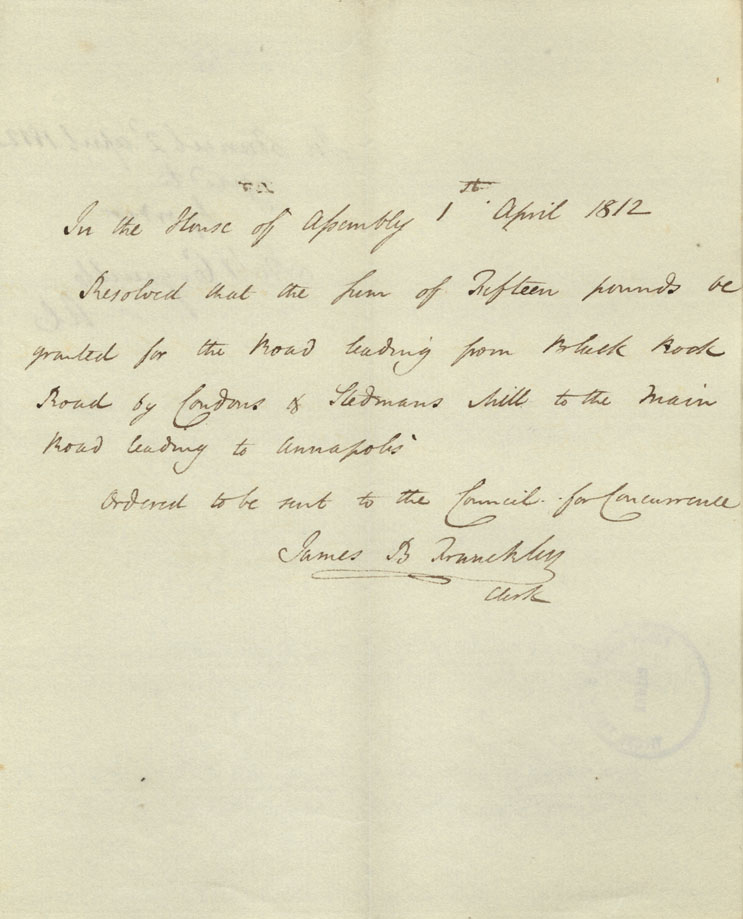 In the House of Assembly 1th April 1812
Resolved that the sum of Fifteen pounds be
granted for the Road leading from Black Rock
Road by Condons & Stedmans Mill to the Main
Road leading to Annapolis
Ordered to be sent to the Council for Concurrence
James B Franckley
Clerk